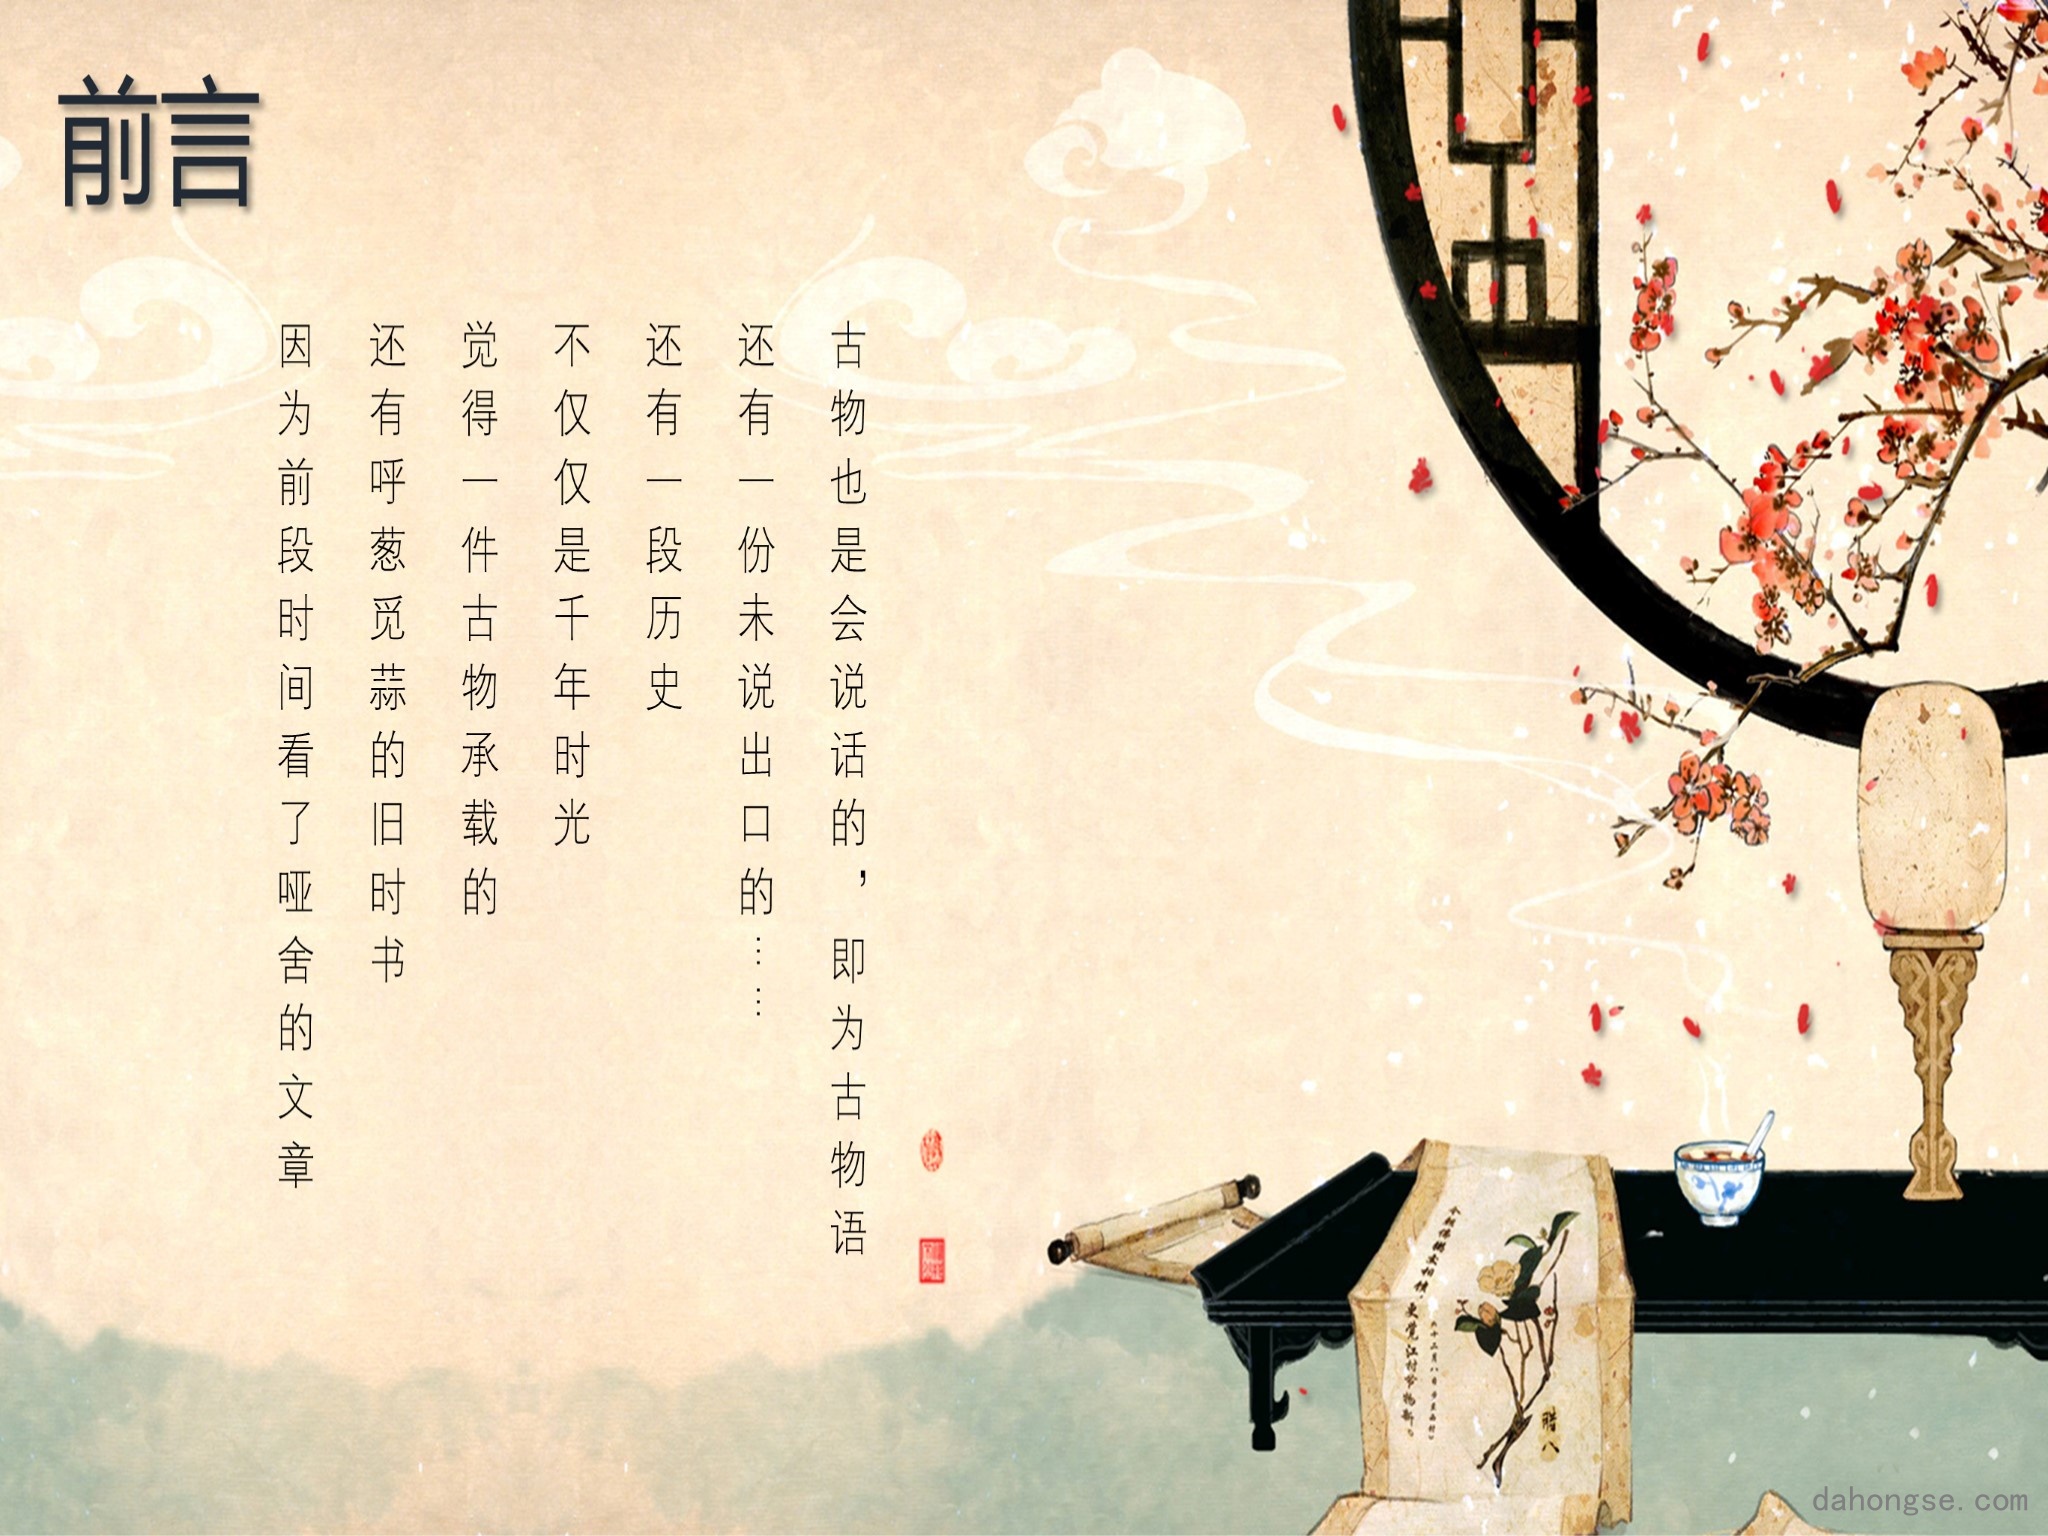 前言
因为前段时间看了哑舍的文章
还有呼葱觅蒜的旧时书
觉得一件古物承载的
不仅仅是千年时光
还有一段历史
还有一份未说出口的……
古物也是会说话的，即为古物语
腊八
今朝佛粥交相馈，更觉江村节物新。
dahongse.com